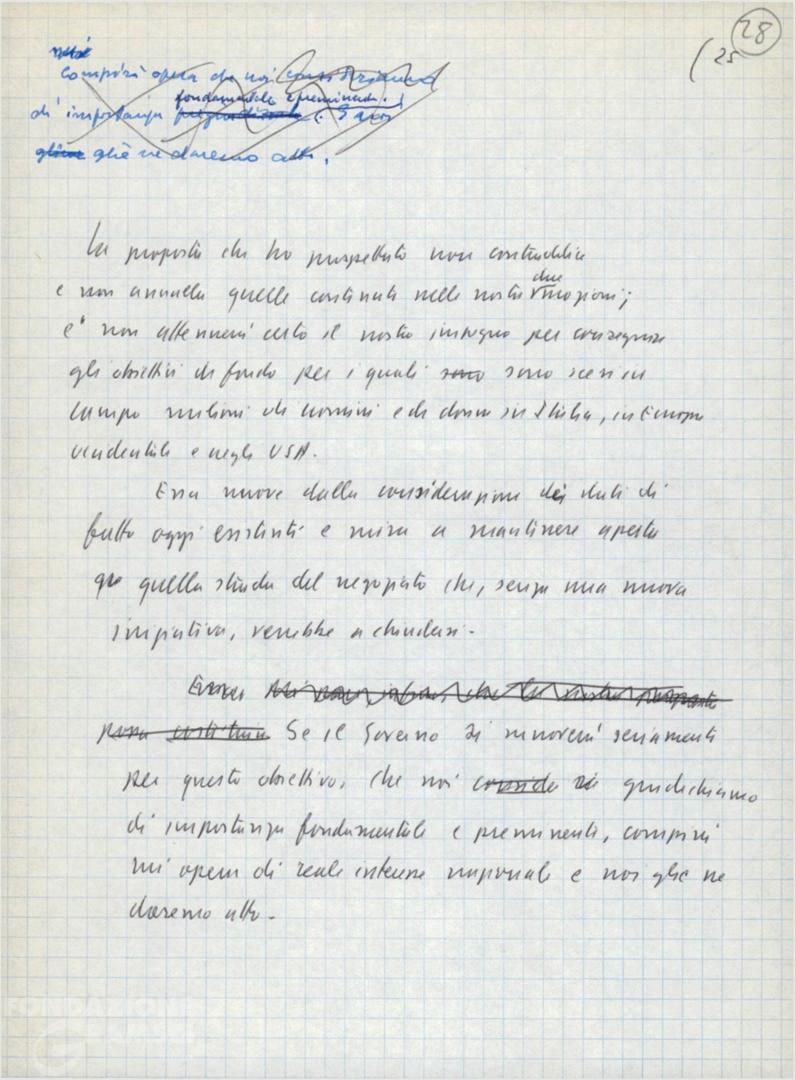 28
(25
compirà opera che noi consideriamo
fondamentale e preminente.
di importanza pregiudiziale
gliene gliene daremo atto.
La proposta che ho prospettato non contraddice
due
e non annulla quelle contenute nelle nostre mozioni;
e non attenuerà certo il nostro impegno per conseguire
gli obiettivi di fondo per i quali sono sono scesi in
campo milioni di uomini e di donne in Italia, in Europa
occidentale e negli USA.
Essa muove dalla considerazione dei dati di
fatto oggi esistenti e mira a mantenere aperta
quella strada del negoziato che, senza una nuova
iniziativa, verrebbe a chiudersi.
che la nostra proposta
possa costituire Se il Governo si muoverà seriamente
per questo obiettivo, che noi conside giudichiamo
di importanza fondamentale e preminente, compirà
un'opera di reale interesse nazionale e noi gliene
daremo atto.
FONDAZIONE
GRAMSCI